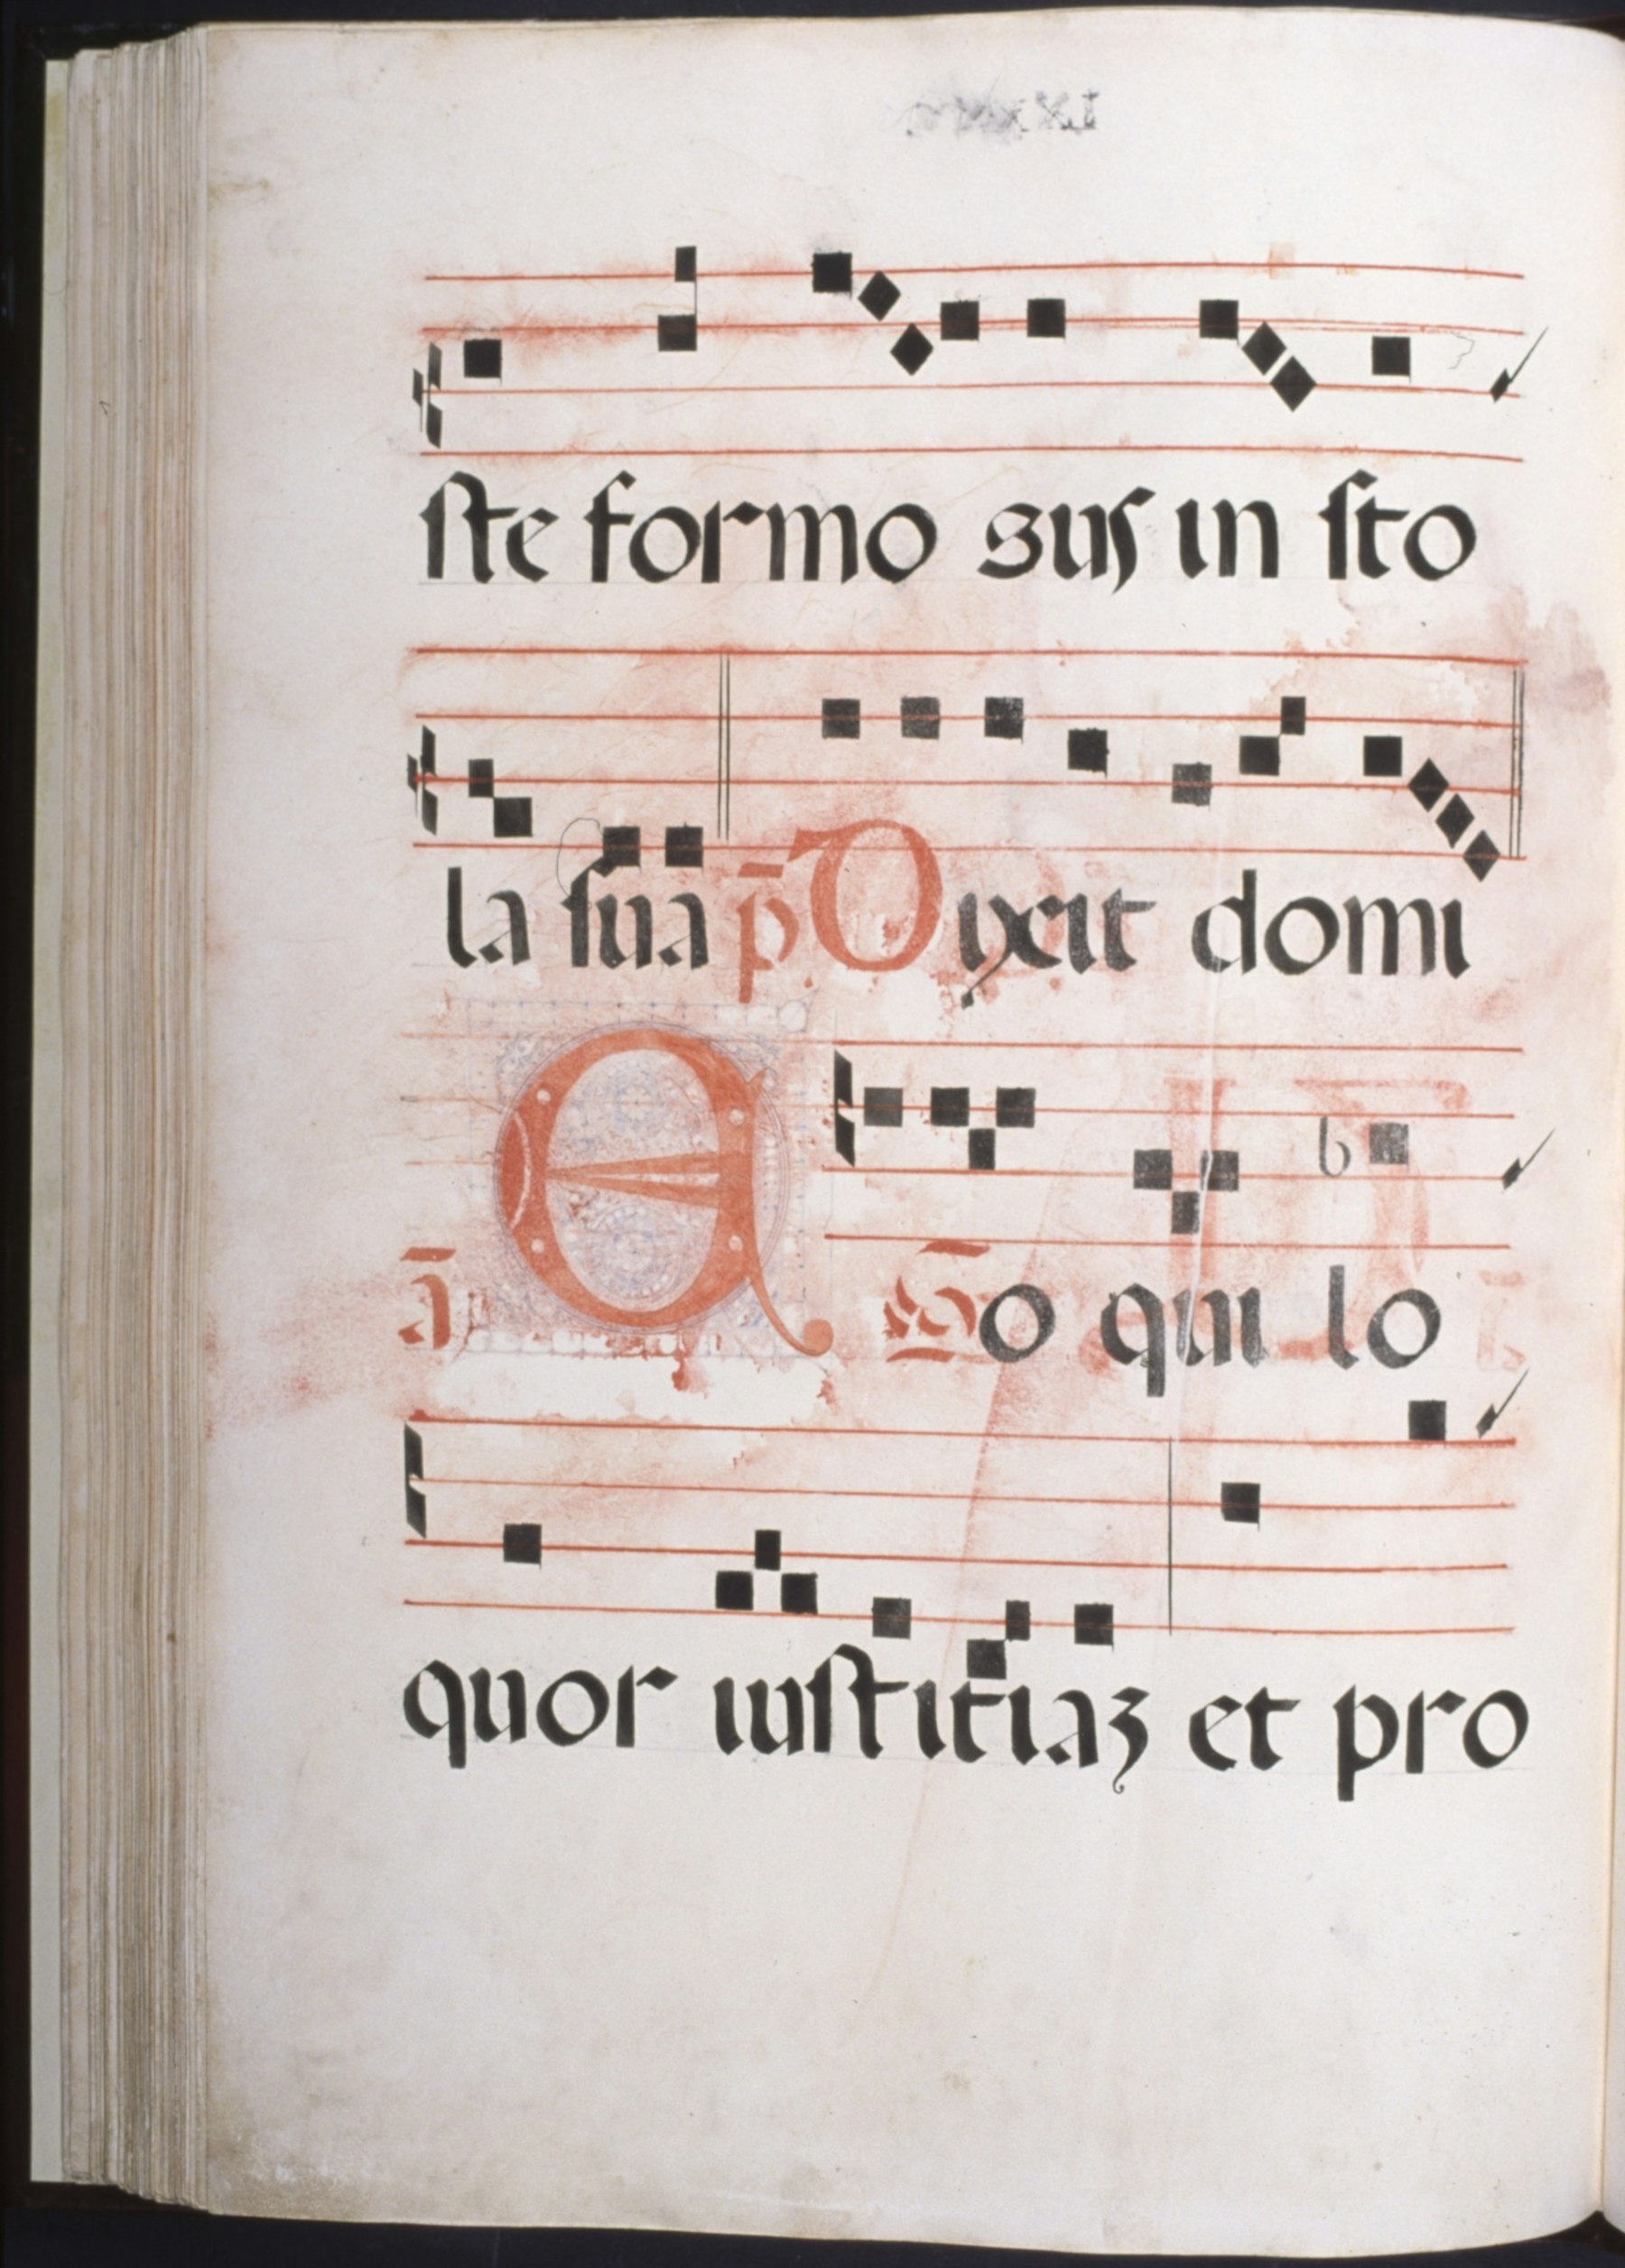 ste formo sus in sto
la sua p̄ Dixit domi
ā E Go qui lo
quor iustitiaʒ et pro